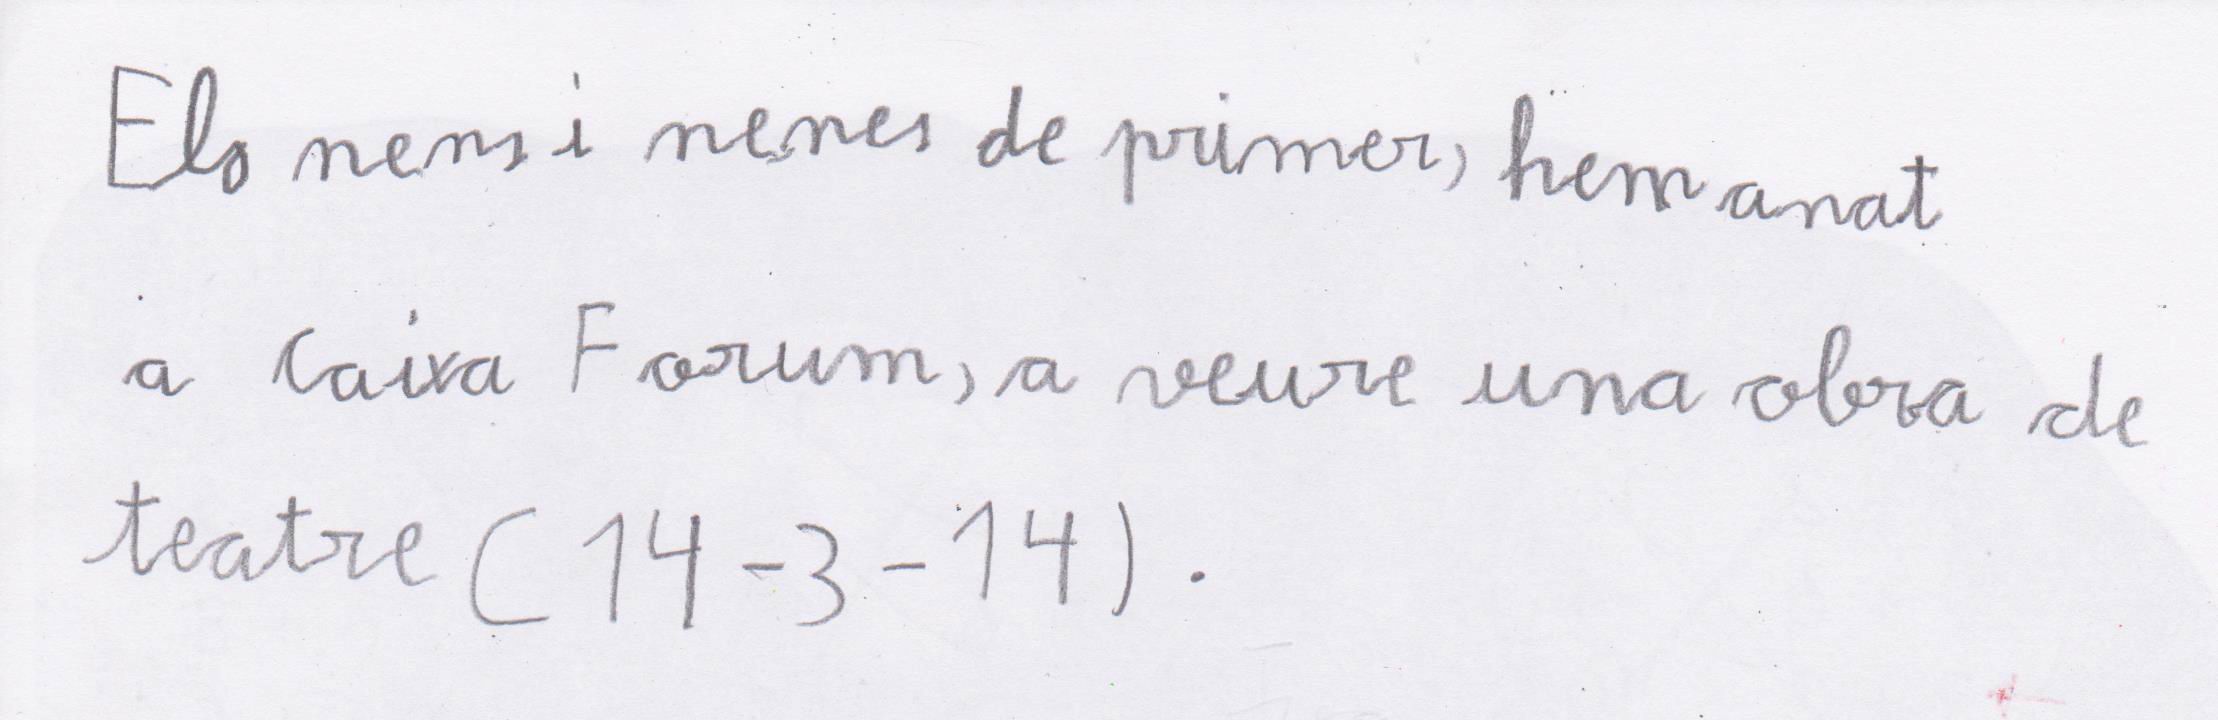 Els nens i nenes de primer, hem anat
a Caixa Forum, a veure una obra de
teatre (14-3-14).